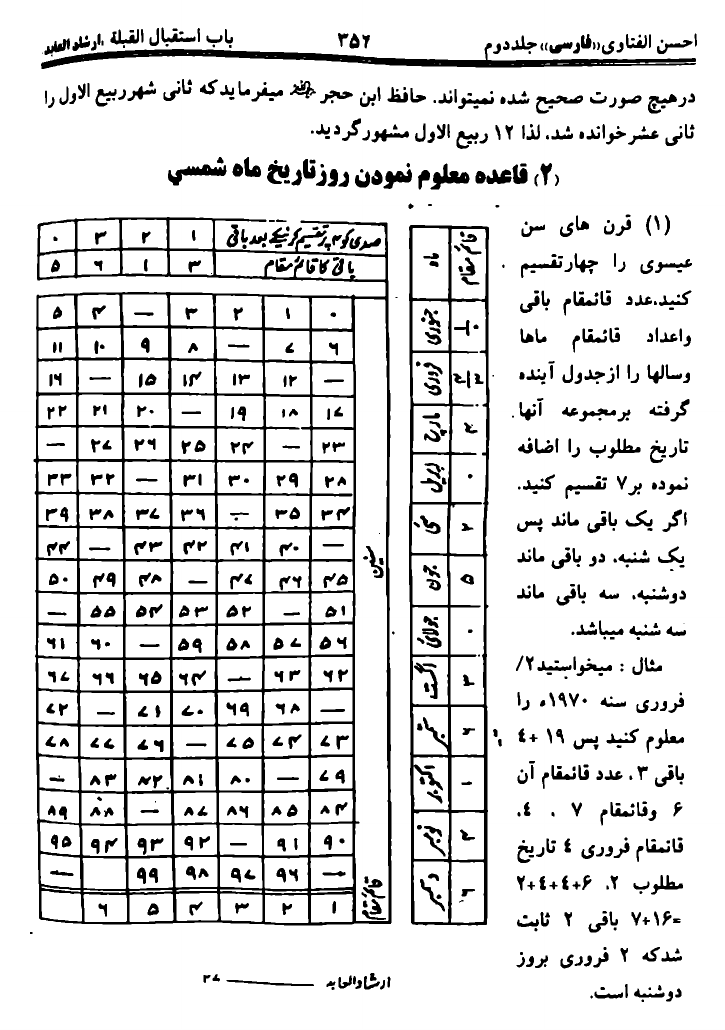 احسن الفتاوی «فارسی» جلد دوم ۳۵۶ باب استقبال القبلة ،ارشاد العابد
درهیچ صورت صحیح شده نمیتواند. حافظ ابن حجر رحمه الله میفرماید که ثانی شهر ربیع الاول را
ثانی عشر خوانده شد، لذا ۱۲ ربیع الاول مشهور گردید.
(۲) قاعده معلوم نمودن روز تاریخ ماه شمسی
(۱) قرن های سن
عیسوی را چهار تقسیم
کنید،عدد قائمقام باقی
واعداد قائمقام ماها
وسالها را از جدول آینده
گرفته بر مجموعه آنها
تاریخ مطلوب را اضافه
نموده بر ۷ تقسیم کنید.
اگر یک باقی ماند پس
یک شنبه، دو باقی ماند
دوشنبه، سه باقی ماند
سه شنبه میباشد.
مثال : میخواستید ۲/
فروری سنه ۱۹۷۰ء را
معلوم کنید پس ۱۹ +٤
باقی ۳ ، عدد قائمقام آن
۶ وقائمقام ۷ ، ٤،
قائمقام فروری ٤ تاریخ
مطلوب ۲. ۶+٤+٤+۲
=۱۶+۷ باقی ۲ ثابت
شد که ۲ فروری بروز
دوشنبه است.
قائم مقام ماه
۰/۱ جنوری
۳/۴ فروری
۴ مارچ
۰ اپریل
۲ مئی
۵ جون
۰ جولائی
۳ اگست
۶ ستمبر
۱ اکتوبر
۴ نومبر
۶ دسمبر
صدی کو ۴ پر تقسیم کرنیکے بعد باقی ۱ ۲ ۳ ۰
باقی کا قائم مقام ۳ ۱ ۶ ۵
سنین
۰ ۱ ۲ ۳ — ۴ ۵
۶ ۷ — ۸ ۹ ۱۰ ۱۱
— ۱۲ ۱۳ ۱۴ ۱۵ — ۱۶
۱۷ ۱۸ ۱۹ — ۲۰ ۲۱ ۲۲
۲۳ — ۲۴ ۲۵ ۲۶ ۲۷ —
۲۸ ۲۹ ۳۰ ۳۱ — ۳۲ ۳۳
۳۴ ۳۵ — ۳۶ ۳۷ ۳۸ ۳۹
— ۴۰ ۴۱ ۴۲ ۴۳ — ۴۴
۴۵ ۴۶ ۴۷ — ۴۸ ۴۹ ۵۰
۵۱ — ۵۲ ۵۳ ۵۴ ۵۵ —
۵۶ ۵۷ ۵۸ ۵۹ — ۶۰ ۶۱
۶۲ ۶۳ — ۶۴ ۶۵ ۶۶ ۶۷
— ۶۸ ۶۹ ۷۰ ۷۱ — ۷۲
۷۳ ۷۴ ۷۵ — ۷۶ ۷۷ ۷۸
۷۹ — ۸۰ ۸۱ ۸۲ ۸۳ —
۸۴ ۸۵ ۸۶ ۸۷ — ۸۸ ۸۹
۹۰ ۹۱ — ۹۲ ۹۳ ۹۴ ۹۵
— ۹۶ ۹۷ ۹۸ ۹۹ —
قائم مقام ۱ ۲ ۳ ۴ ۵ ۶
ارشاد العابد ——— ۲۷